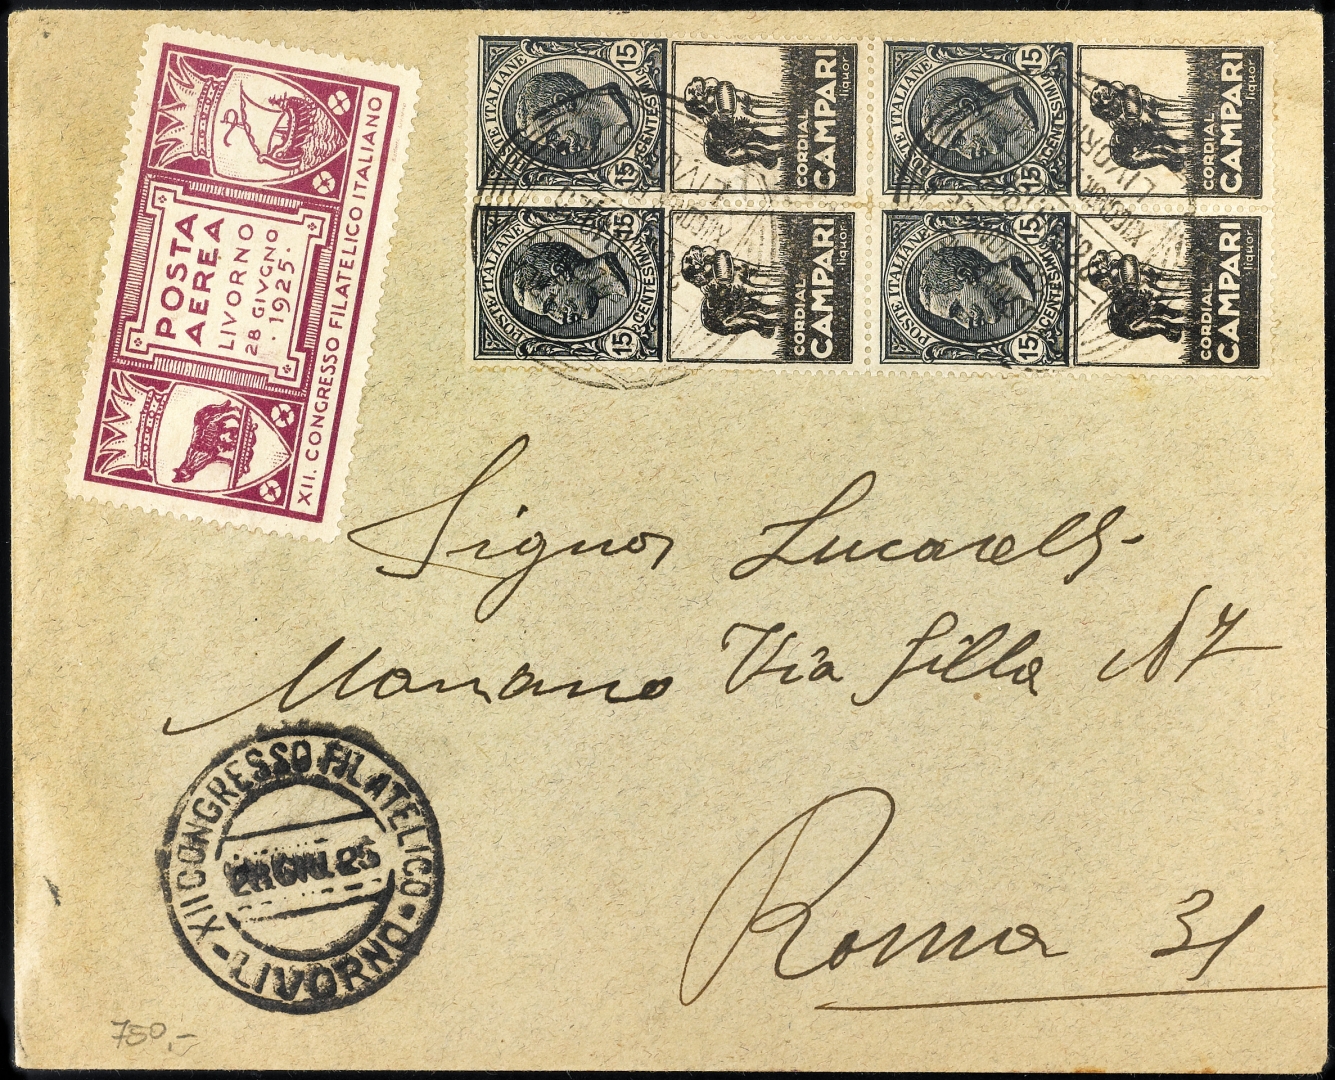 POSTA
AEREA
LIVORNO
28 GIVGNO
· 1925 ·
XII. CONGRESSO FILATELICO ITALIANO
POSTE ITALIANE
15 CENTESIMI 15
CORDIAL
CAMPARI
liquor
POSTE ITALIANE
15 CENTESIMI 15
CORDIAL
CAMPARI
liquor
POSTE ITALIANE
15 CENTESIMI 15
CORDIAL
CAMPARI
liquor
POSTE ITALIANE
15 CENTESIMI 15
CORDIAL
CAMPARI
liquor
Signor Lucarelli
Mariano Via Silla N 7
Roma 31
XII CONGRESSO FILATELICO
28 GIU. 25
- LIVORNO -
750,-